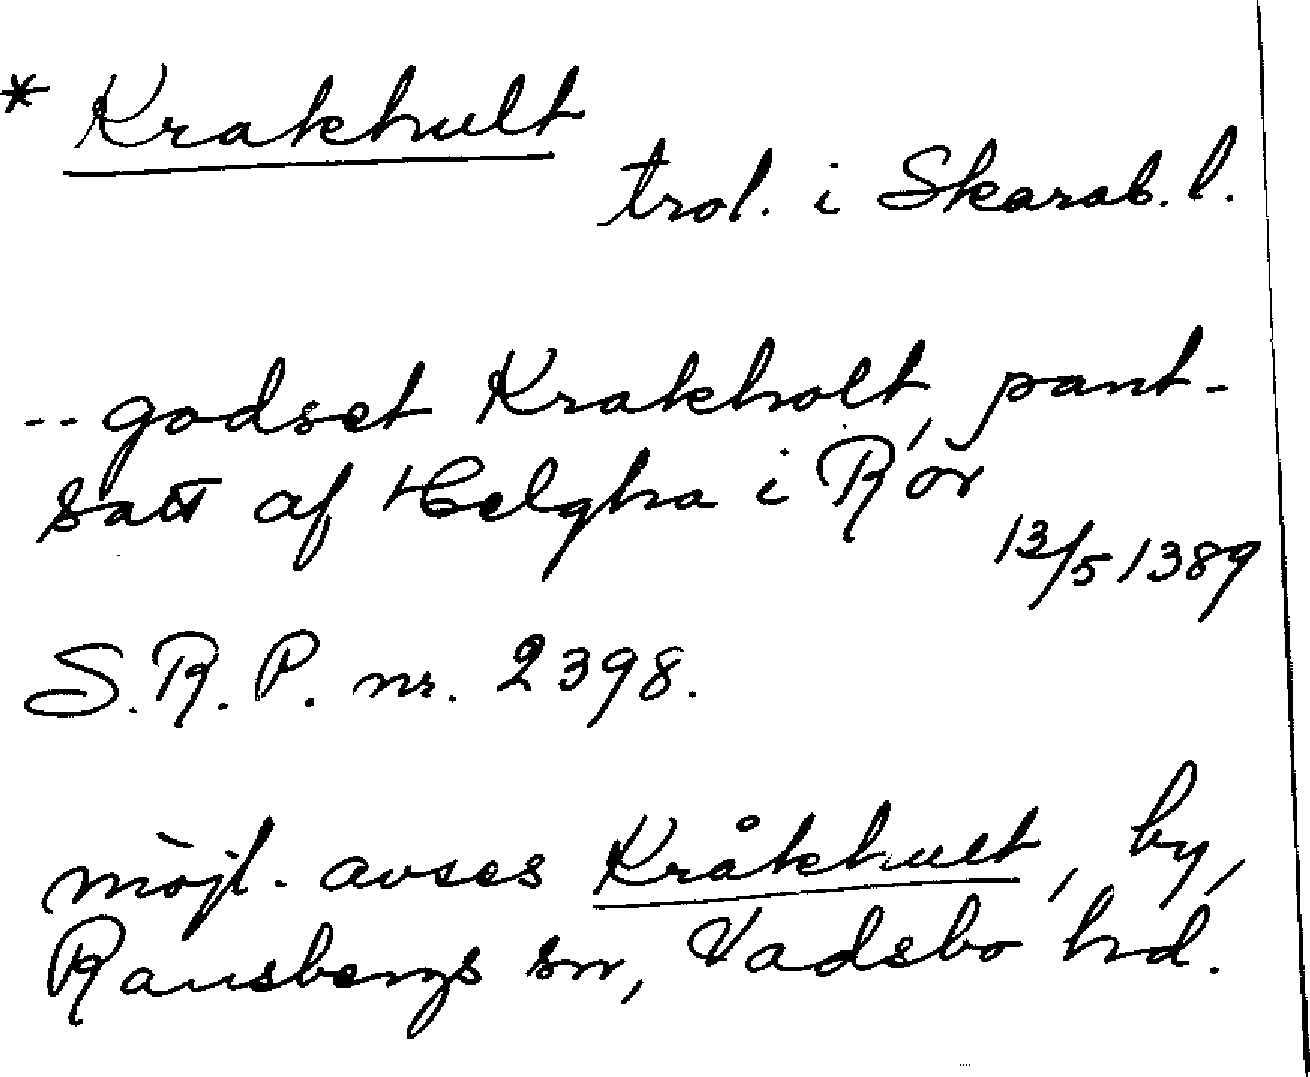 * Krakhult
trol. i Skarab. l.
-- godset Krakholt, pant-
satt af Helgha i Rör
13/5 1389
S.R.P. nr. 2398.
möjl. avses Kråkhult, by,
Ransbergs sn, Vadsbo hd.